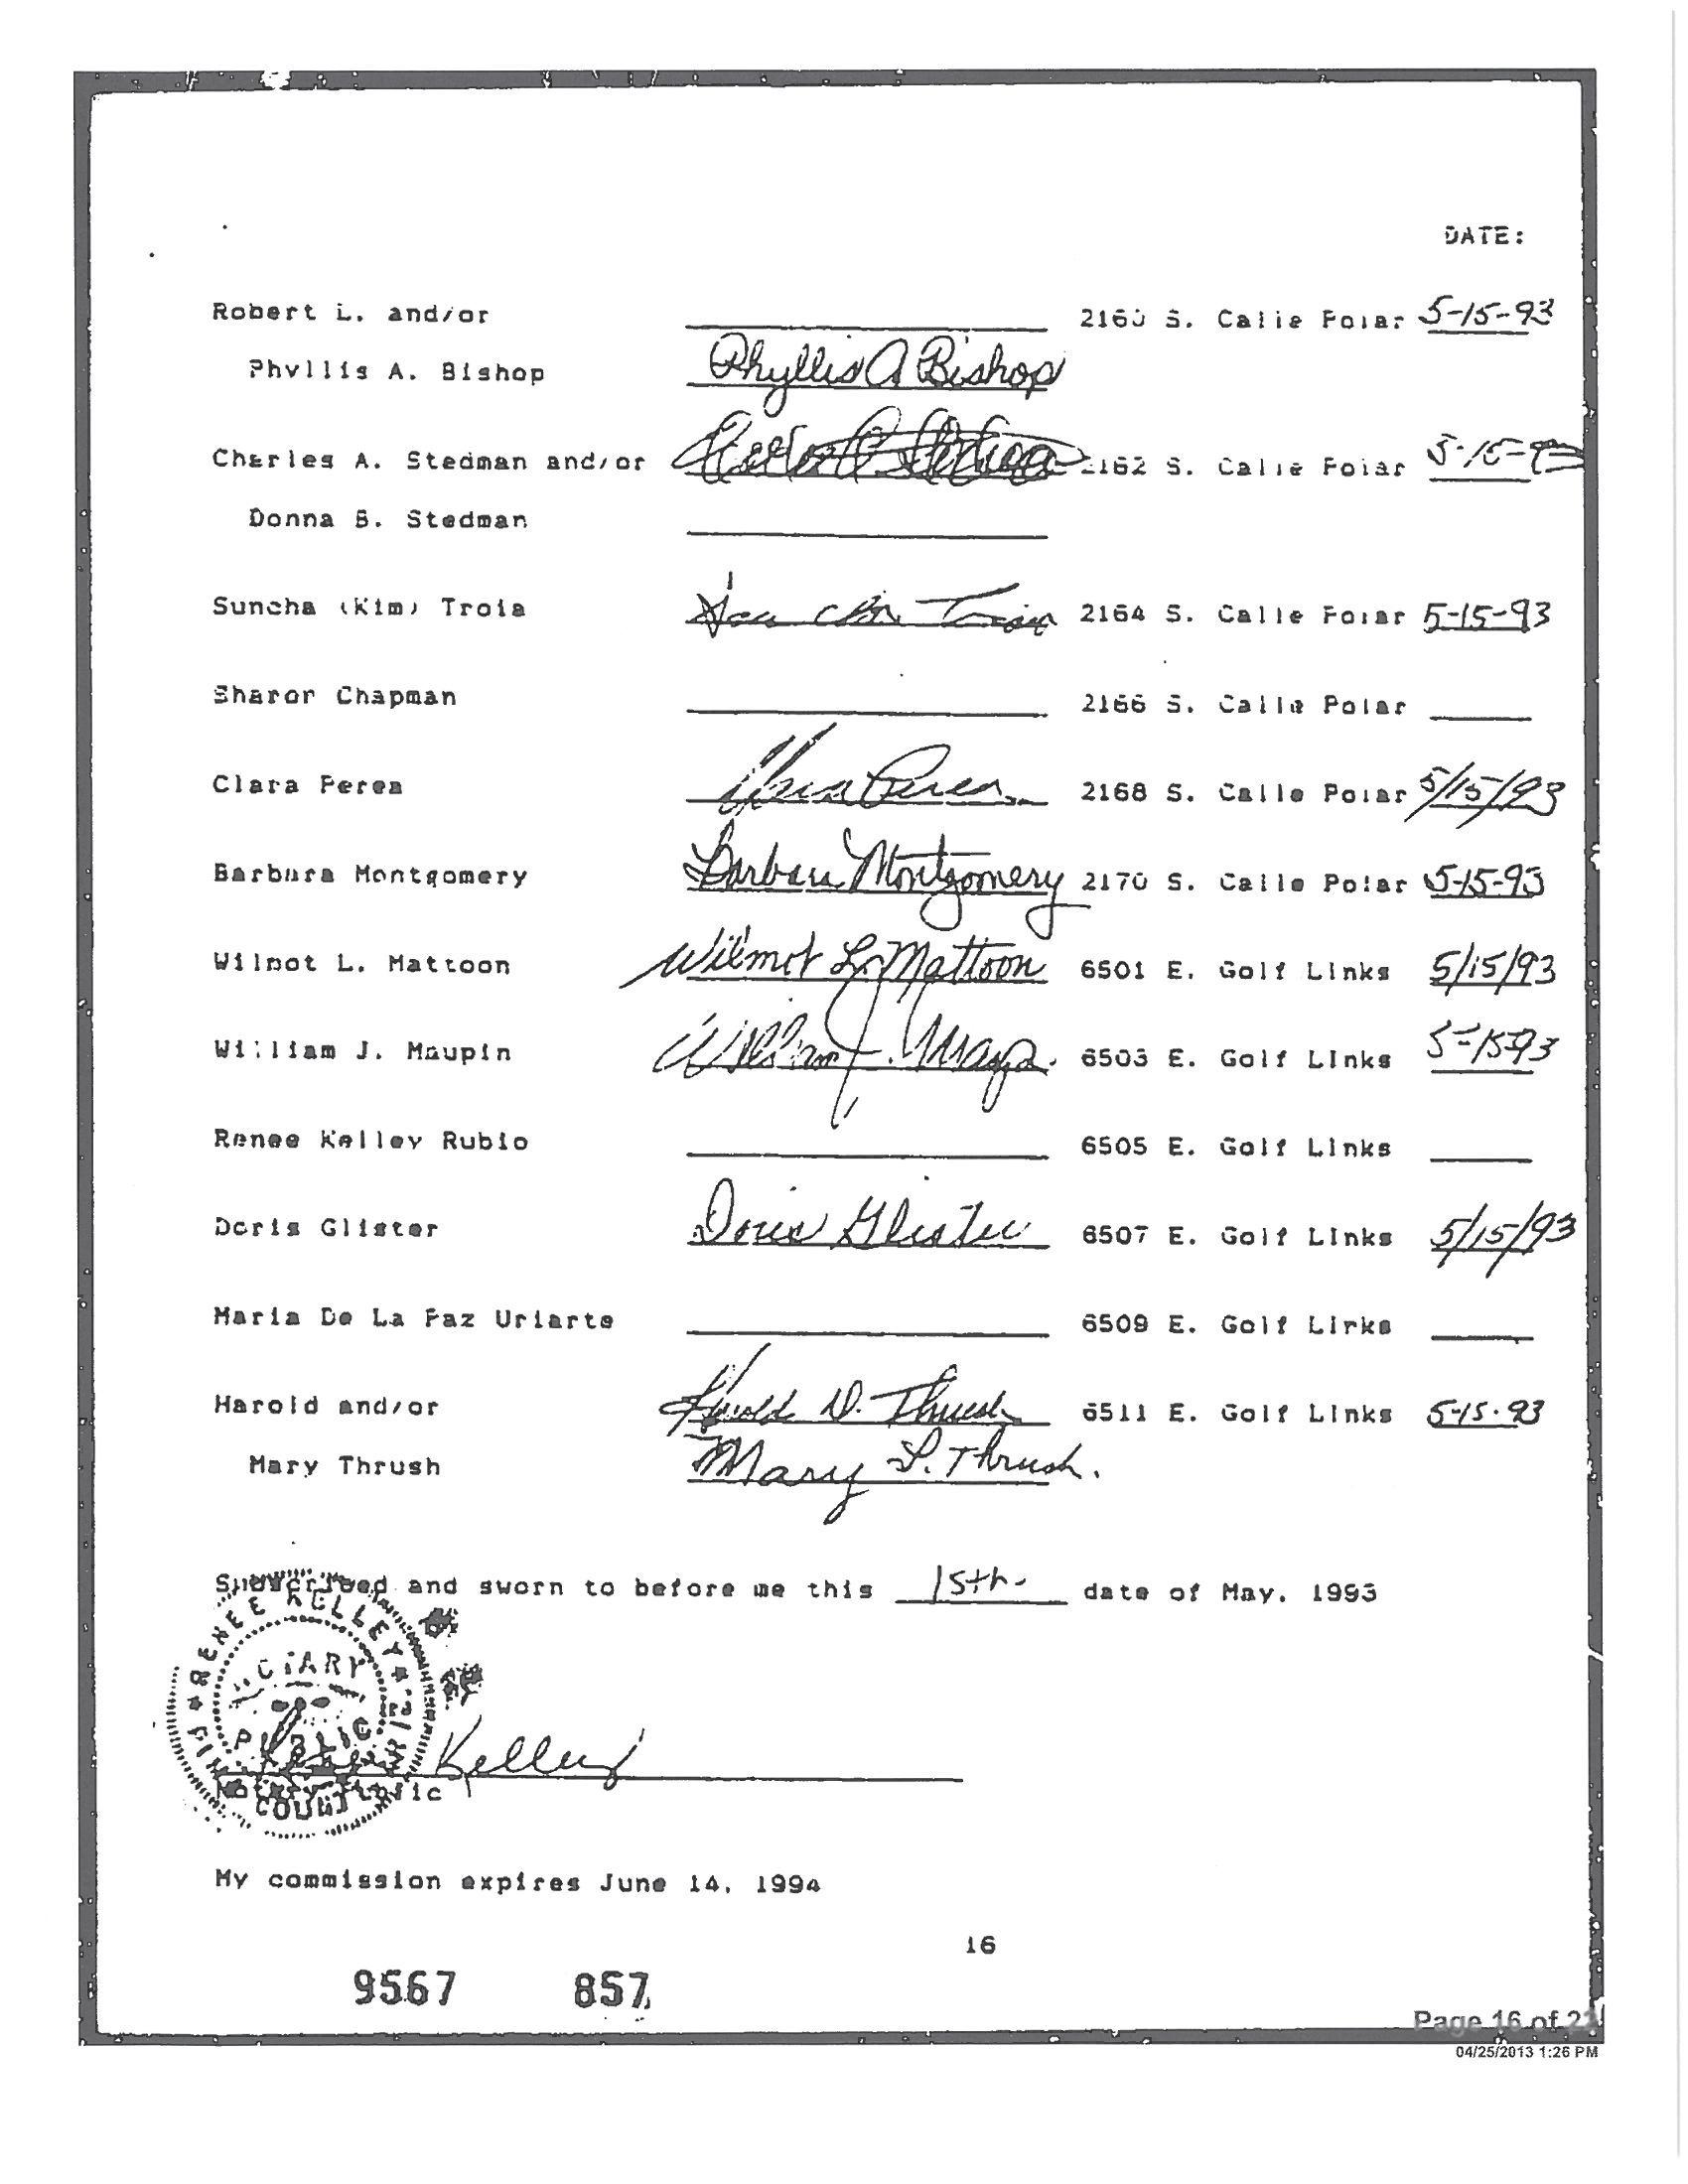 DATE:
Robert L. and/or 2160 S. Calle Polar 5-15-93
Phyllis A. Bishop Phyllis A Bishop
Charles A. Stedman and/or 2162 S. Calle Polar 5-15-93
Donna B. Stedman
Suncha (Kim) Troia Sun Cha Troia 2164 S. Calle Polar 5-15-93
Sharon Chapman 2166 S. Calle Polar
Clara Perea Clara Perea 2168 S. Calle Polar 5/15/93
Barbara Montgomery Barbara Montgomery 2170 S. Calle Polar 5-15-93
Wilmot L. Mattoon Wilmot L. Mattoon 6501 E. Golf Links 5/15/93
William J. Maupin William J. 6503 E. Golf Links 5-15-93
Renee Kelley Rubio 6505 E. Golf Links
Doris Glister Doris Glister 6507 E. Golf Links 5/15/93
Maria De La Paz Uriarte 6509 E. Golf Links
Harold and/or Harold D. Thrush 6511 E. Golf Links 5-15-93
Mary Thrush Mary L. Thrush.
Subscribed and sworn to before me this 15th- date of May, 1993
RENEE KELLEY
NOTARY
PUBLIC
COUNTY
Renee Kelley
Notary Public
My commission expires June 14, 1994
16
9567 857
Page 16 of 22
04/25/2013 1:26 PM